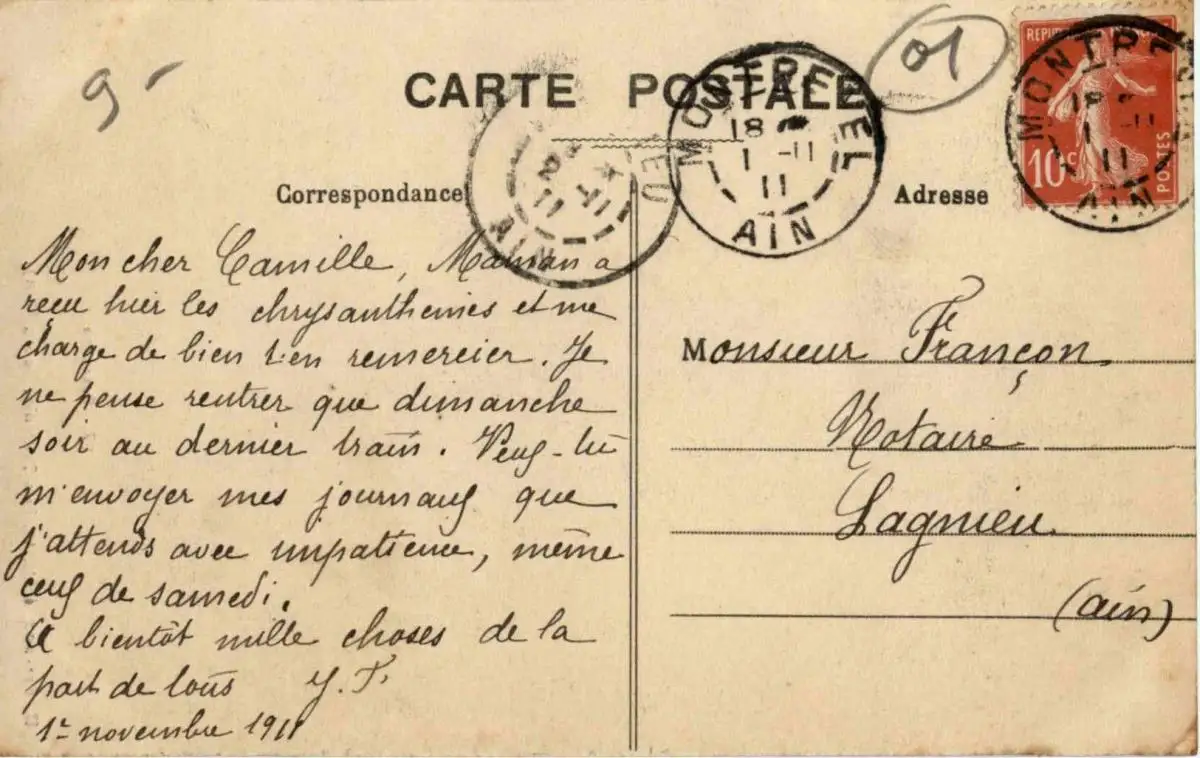 9-
01
CARTE POSTALE
REPUBLIQUE
10c
POSTES
MONTREVEL
18
1 -11
11
AIN
MONTREVEL
18
1 -11
11
AIN
2 -11
11
AIN
Correspondance
Adresse
Mon cher Camille, Maman a
reçu hier les chrysanthèmes et me
charge de bien t'en remercier. Je
ne pense rentrer que dimanche
soir au dernier train. Veux-tu
m'envoyer mes journaux que
j'attends avec impatience, même
ceux de samedi.
A bientôt mille choses de la
part de tous Y. F.
1er novembre 1911
Monsieur Françon
Notaire
Lagnieu
(ain)